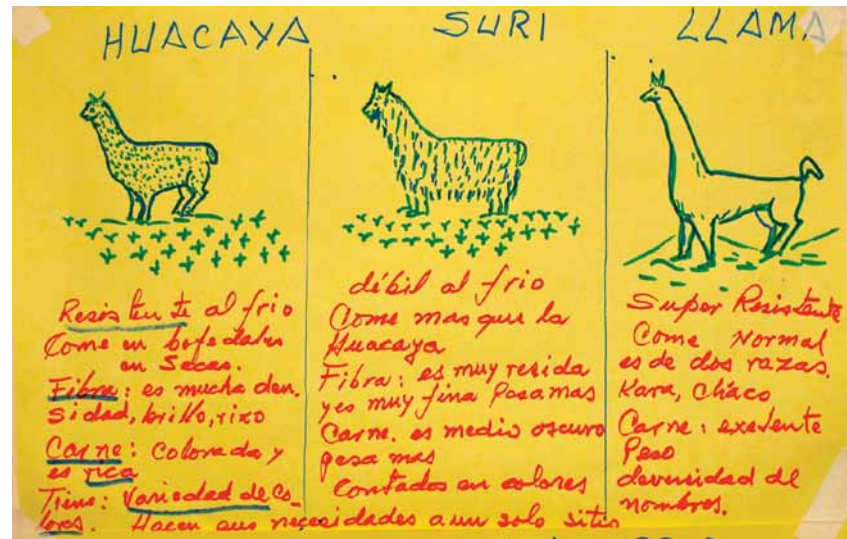 HUACAYA
Resistente al frio
Come en bofedales
en Secas.
Fibra: es mucha den.
sidad, brillo, rizo
Carne: Colorada y
es rica
Tiene: Variedad de Co-
lores. Hacen sus necesidades a un solo sitio
SURI
débil al frio
Come mas que la
Huacaya
Fibra: es muy
yes muy fina Pesa mas
Carne. es medio oscuro
pesa mas
Contados en colores
LLAMA
Super Resistente
Come Normal
es de dos razas.
Kara, Chaco
Carne: exelente
Peso
deversidad de
nombres.